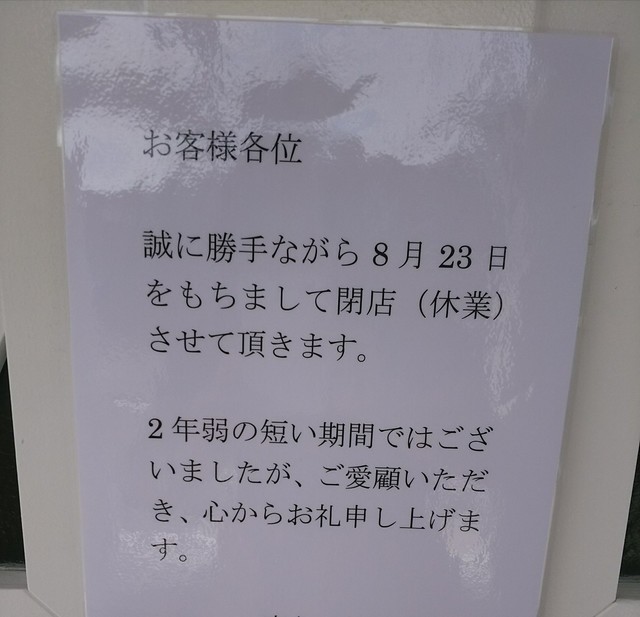 お客様各位
誠に勝手ながら8月23日
をもちまして閉店（休業）
させて頂きます。
2年弱の短い期間ではござ
いましたが、ご愛顧いただ
き、心からお礼申し上げま
す。